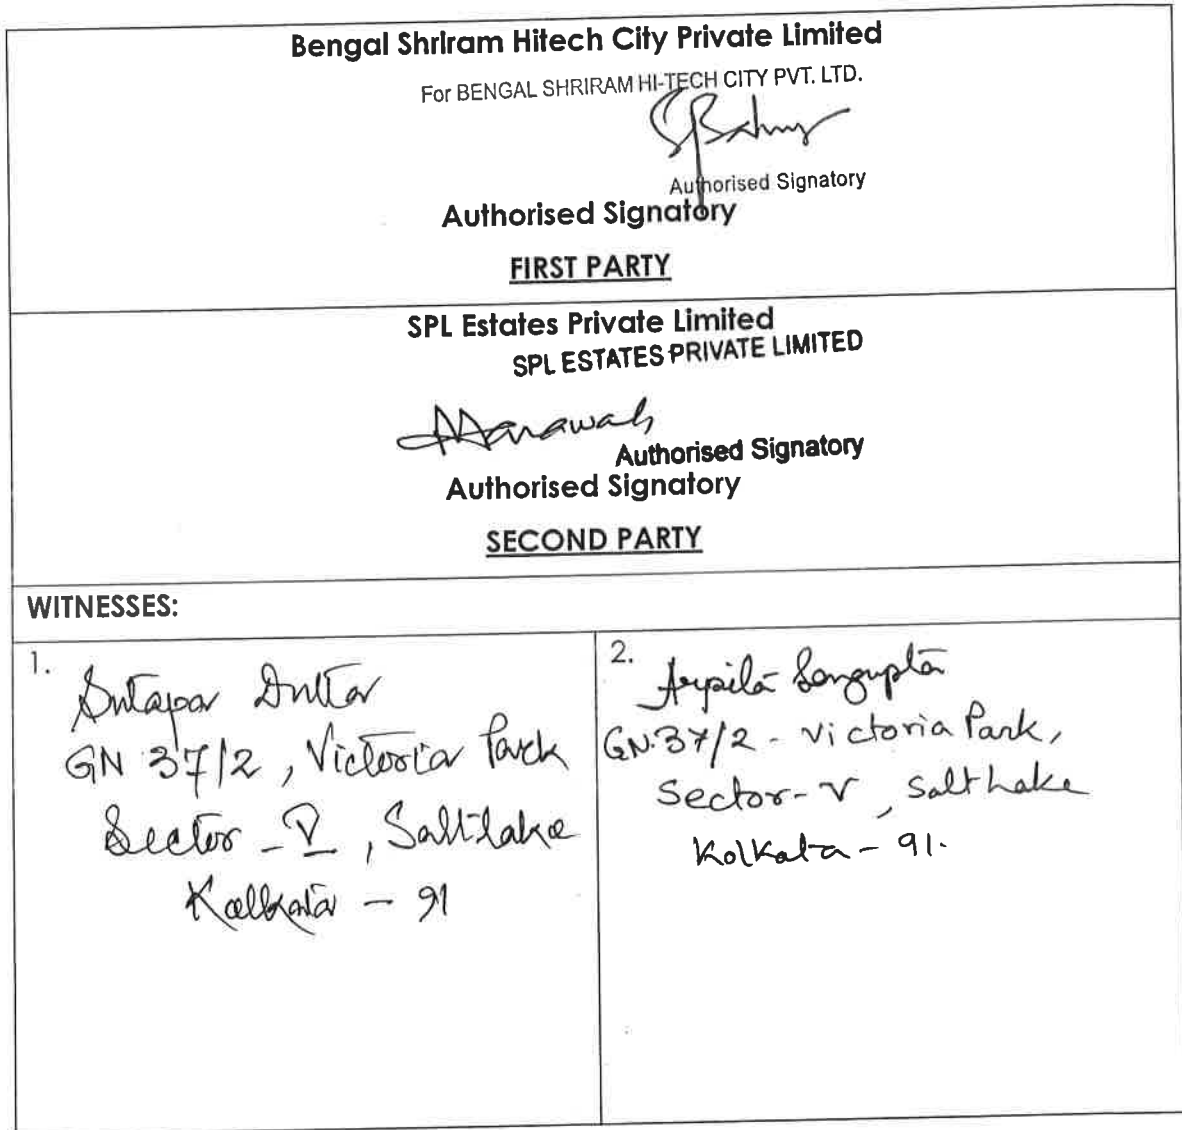 Bengal Shriram Hitech City Private Limited
For BENGAL SHRIRAM HI-TECH CITY PVT. LTD.
Authorised Signatory
Authorised Signatory
FIRST PARTY
SPL Estates Private Limited
SPL ESTATES PRIVATE LIMITED
Authorised Signatory
Authorised Signatory
SECOND PARTY
WITNESSES:
1.
Sutapa Dutta
GN 37/2, Victoria Park
Sector - V, Saltlake
Kolkata - 91
2.
Arpita Sengupta
GN.37/2 - Victoria Park,
Sector - V, Salt Lake
Kolkata - 91.